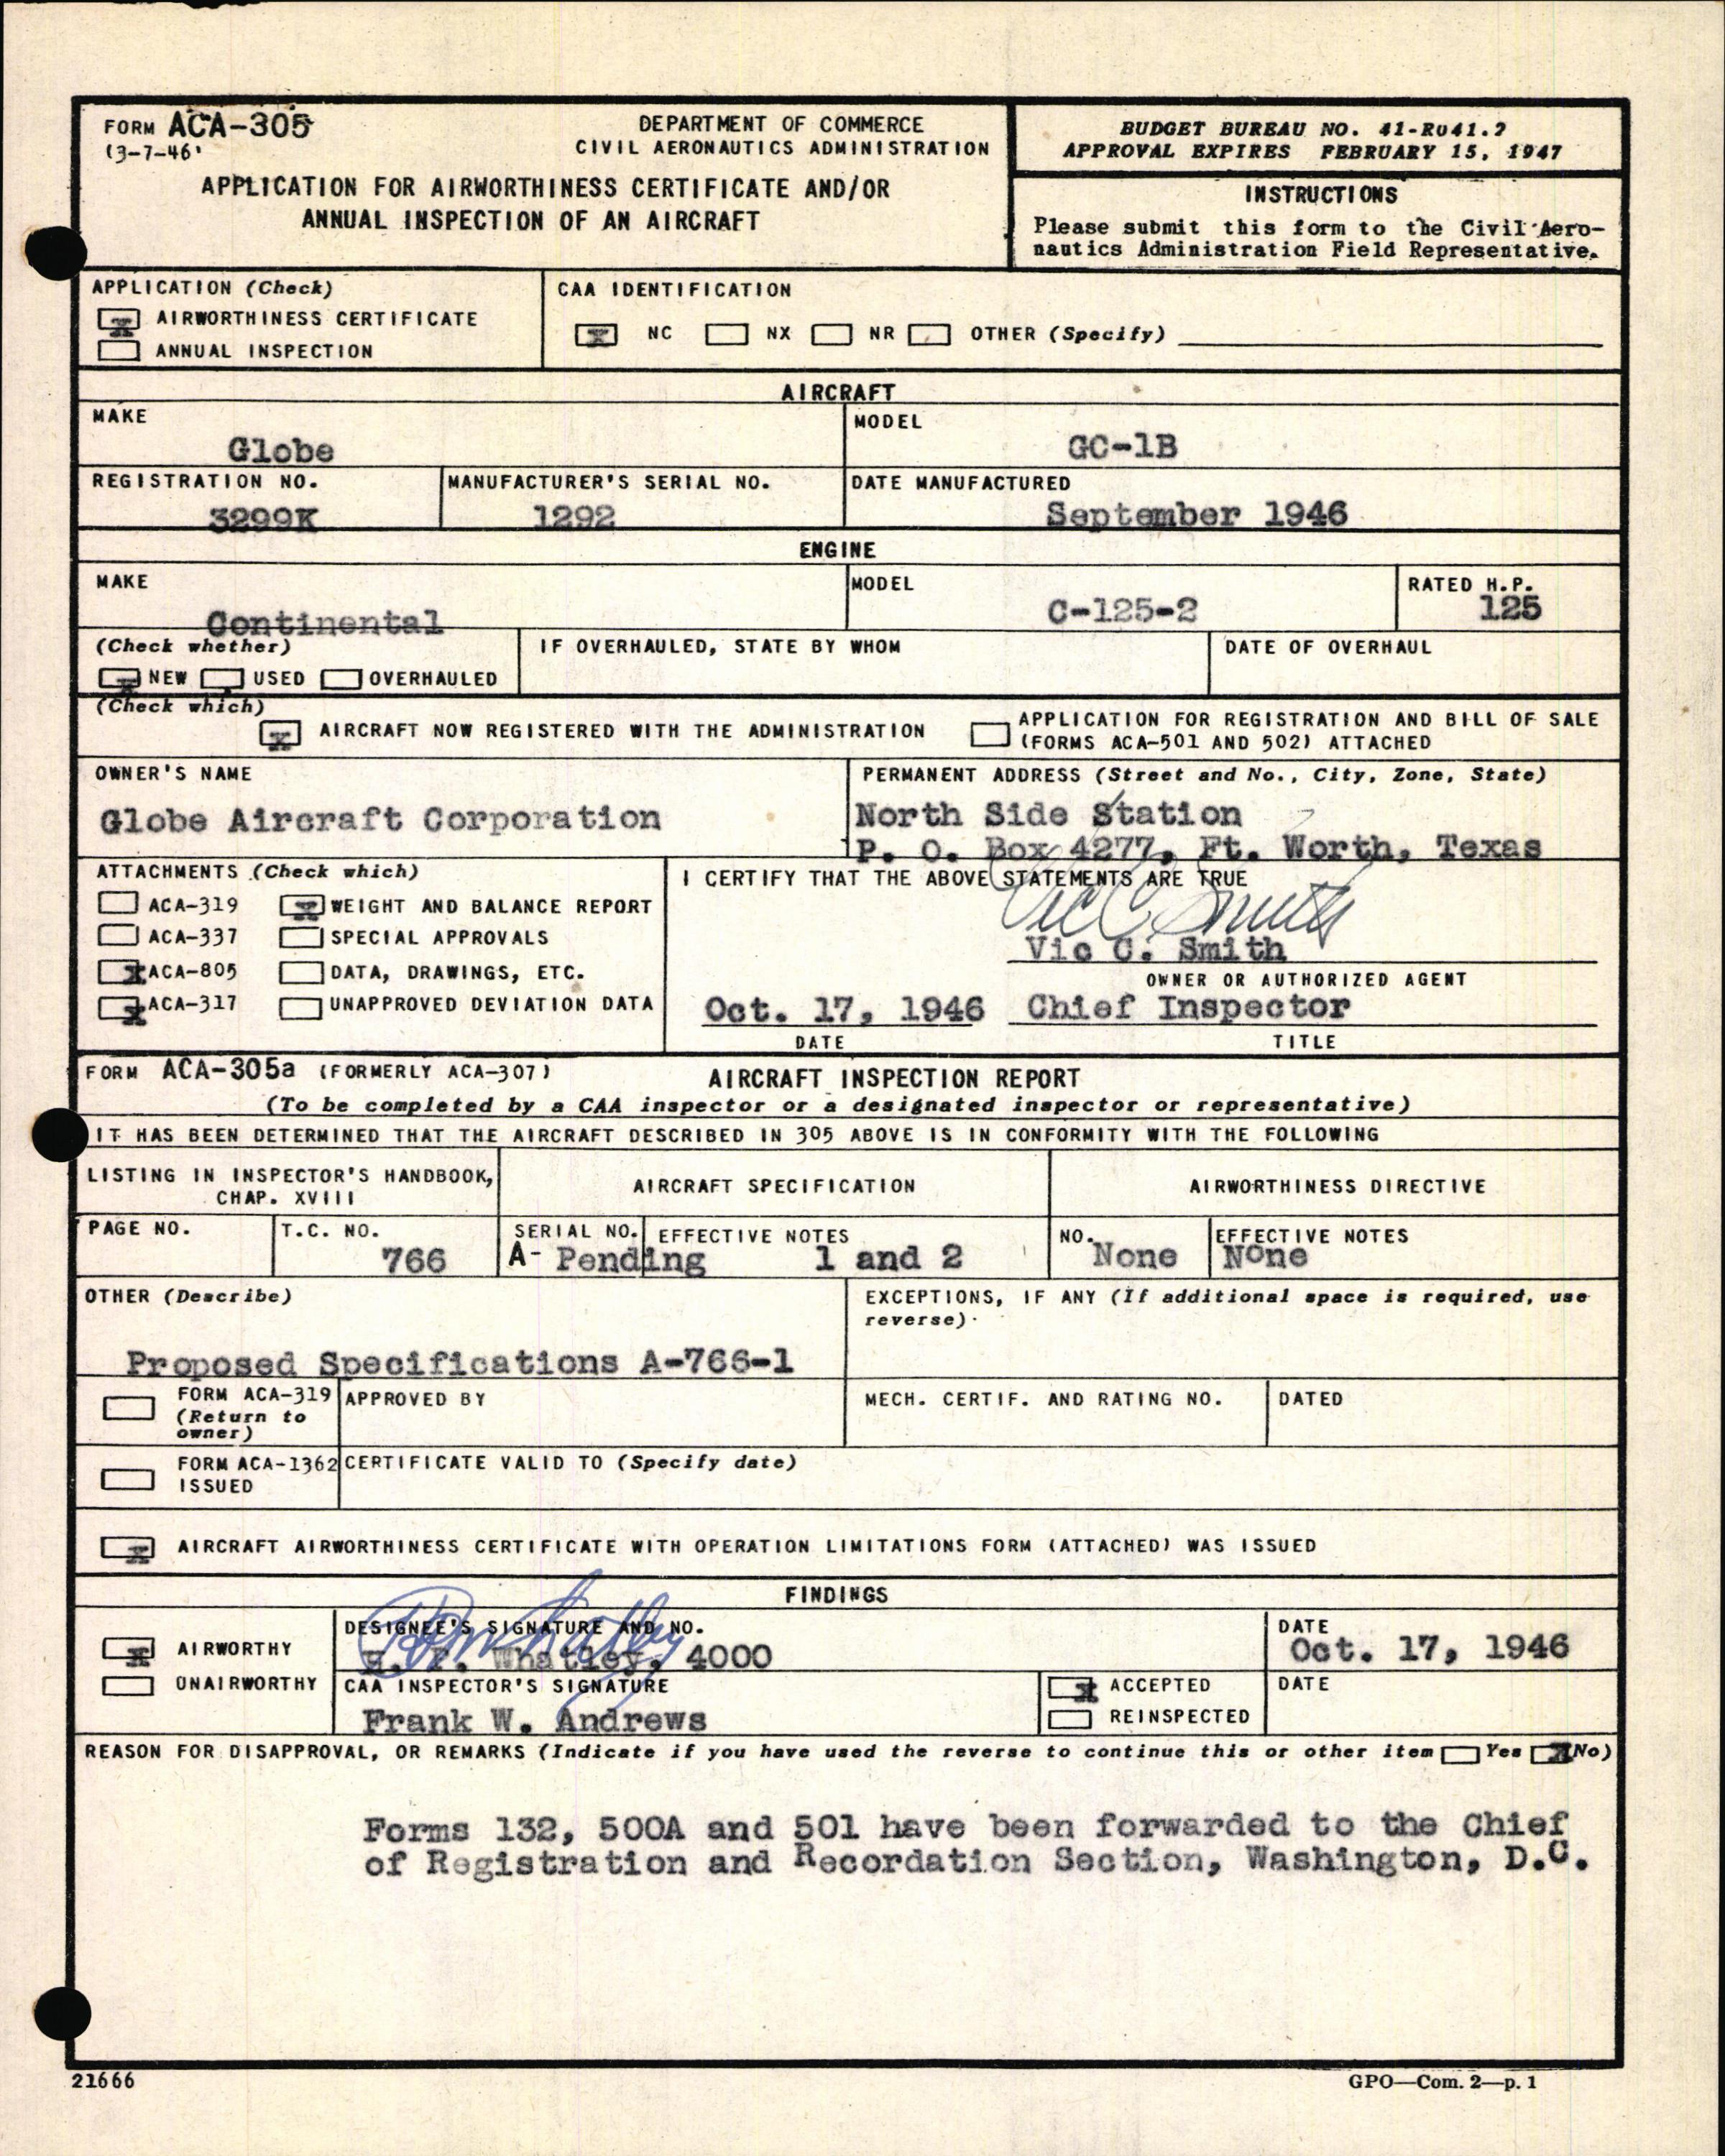 FORM ACA-305
(3-7-46)
DEPARTMENT OF COMMERCE
CIVIL AERONAUTICS ADMINISTRATION
APPLICATION FOR AIRWORTHINESS CERTIFICATE AND/OR
ANNUAL INSPECTION OF AN AIRCRAFT
BUDGET BUREAU NO. 41-R041.2
APPROVAL EXPIRES FEBRUARY 15, 1947
INSTRUCTIONS
Please submit this form to the Civil Aero-
nautics Administration Field Representative.
APPLICATION (Check)
X AIRWORTHINESS CERTIFICATE
ANNUAL INSPECTION
CAA IDENTIFICATION
X NC NX NR OTHER (Specify)
AIRCRAFT
MAKE
Globe
MODEL
GC-1B
REGISTRATION NO.
3299K
MANUFACTURER'S SERIAL NO.
1292
DATE MANUFACTURED
September 1946
ENGINE
MAKE
Continental
MODEL
C-125-2
RATED H.P.
125
(Check whether)
X NEW USED OVERHAULED
IF OVERHAULED, STATE BY WHOM
DATE OF OVERHAUL
(Check which)
X AIRCRAFT NOW REGISTERED WITH THE ADMINISTRATION
APPLICATION FOR REGISTRATION AND BILL OF SALE
(FORMS ACA-501 AND 502) ATTACHED
OWNER'S NAME
Globe Aircraft Corporation
PERMANENT ADDRESS (Street and No., City, Zone, State)
North Side Station
P. O. Box 4277, Ft. Worth, Texas
ATTACHMENTS (Check which)
ACA-319 X WEIGHT AND BALANCE REPORT
ACA-337 SPECIAL APPROVALS
X ACA-805 DATA, DRAWINGS, ETC.
X ACA-317 UNAPPROVED DEVIATION DATA
I CERTIFY THAT THE ABOVE STATEMENTS ARE TRUE
Vic C Smith
Vic C. Smith
OWNER OR AUTHORIZED AGENT
Oct. 17, 1946 Chief Inspector
DATE TITLE
FORM ACA-305a (FORMERLY ACA-307)
AIRCRAFT INSPECTION REPORT
(To be completed by a CAA inspector or a designated inspector or representative)
IT HAS BEEN DETERMINED THAT THE AIRCRAFT DESCRIBED IN 305 ABOVE IS IN CONFORMITY WITH THE FOLLOWING
LISTING IN INSPECTOR'S HANDBOOK,
CHAP. XVIII
AIRCRAFT SPECIFICATION
AIRWORTHINESS DIRECTIVE
PAGE NO.
T.C. NO.
766
SERIAL NO. EFFECTIVE NOTES
A- Pending 1 and 2
NO.
None
EFFECTIVE NOTES
None
OTHER (Describe)
Proposed Specifications A-766-1
EXCEPTIONS, IF ANY (If additional space is required, use
reverse).
FORM ACA-319
(Return to
owner)
APPROVED BY
MECH. CERTIF. AND RATING NO.
DATED
FORM ACA-1362
ISSUED
CERTIFICATE VALID TO (Specify date)
X AIRCRAFT AIRWORTHINESS CERTIFICATE WITH OPERATION LIMITATIONS FORM (ATTACHED) WAS ISSUED
FINDINGS
X AIRWORTHY
UNAIRWORTHY
DESIGNEE'S SIGNATURE AND NO.
Whatley, 4000
DATE
Oct. 17, 1946
CAA INSPECTOR'S SIGNATURE
Frank W. Andrews
X ACCEPTED
REINSPECTED
DATE
REASON FOR DISAPPROVAL, OR REMARKS (Indicate if you have used the reverse to continue this or other item Yes X No)
Forms 132, 500A and 501 have been forwarded to the Chief
of Registration and Recordation Section, Washington, D.C.
21666
GPO—Com. 2—p. 1